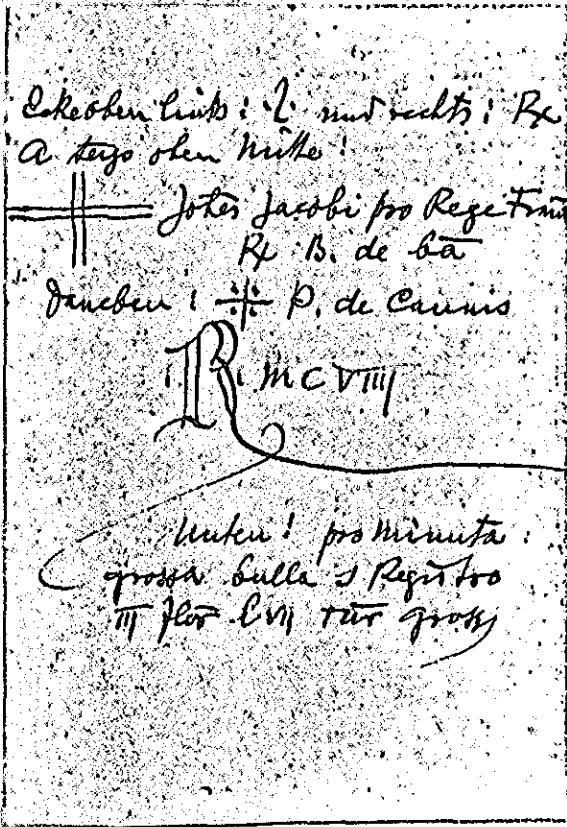 Ecke oben links: 2 und rechts: Rx
A tergo oben Mitte!
Johes Jacobi pro Rege Fran
Rx B. de bā
daneben! P. de Caunis
R. MCVIII
Unten! pro minuta:
grossa bulla s Registro
III flor. LVII Tur gross